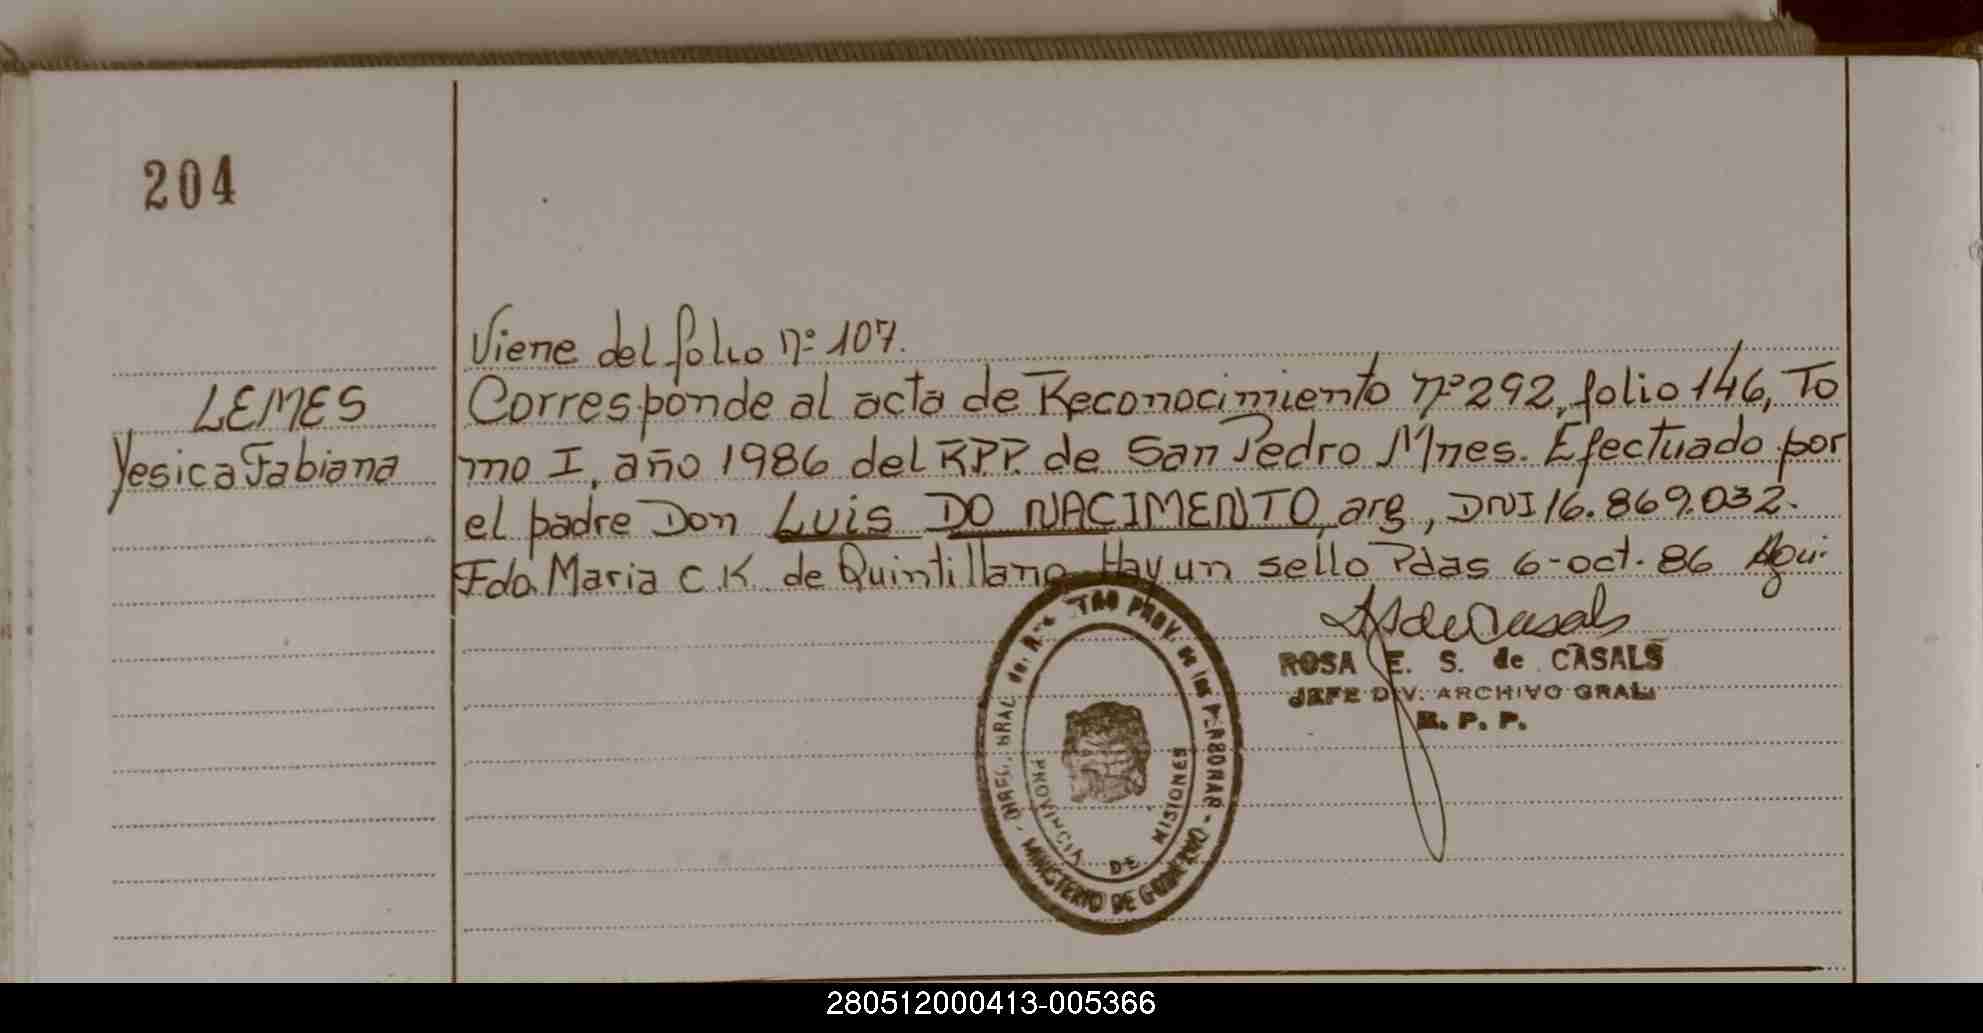 204
Viene del folio nº 107.
LEMES
Yesica Fabiana
Corresponde al acta de Reconocimiento nº 292, folio 146, To
mo I, año 1986 del RPP. de San Pedro Mnes. Efectuado por
el padre Don Luis DO NACIMENTO, arg, DNI 16.869.032.
Fdo. Maria C.K. de Quintillano Hay un sello Pdas 6-oct.86
ROSA E. S. de CASALS
JEFE DIV. ARCHIVO GRAL.
R. P. P.
PROV. de las
MINISTERIO DE GOBIERNO
PROVINCIA DE MISIONES
280512000413-005366